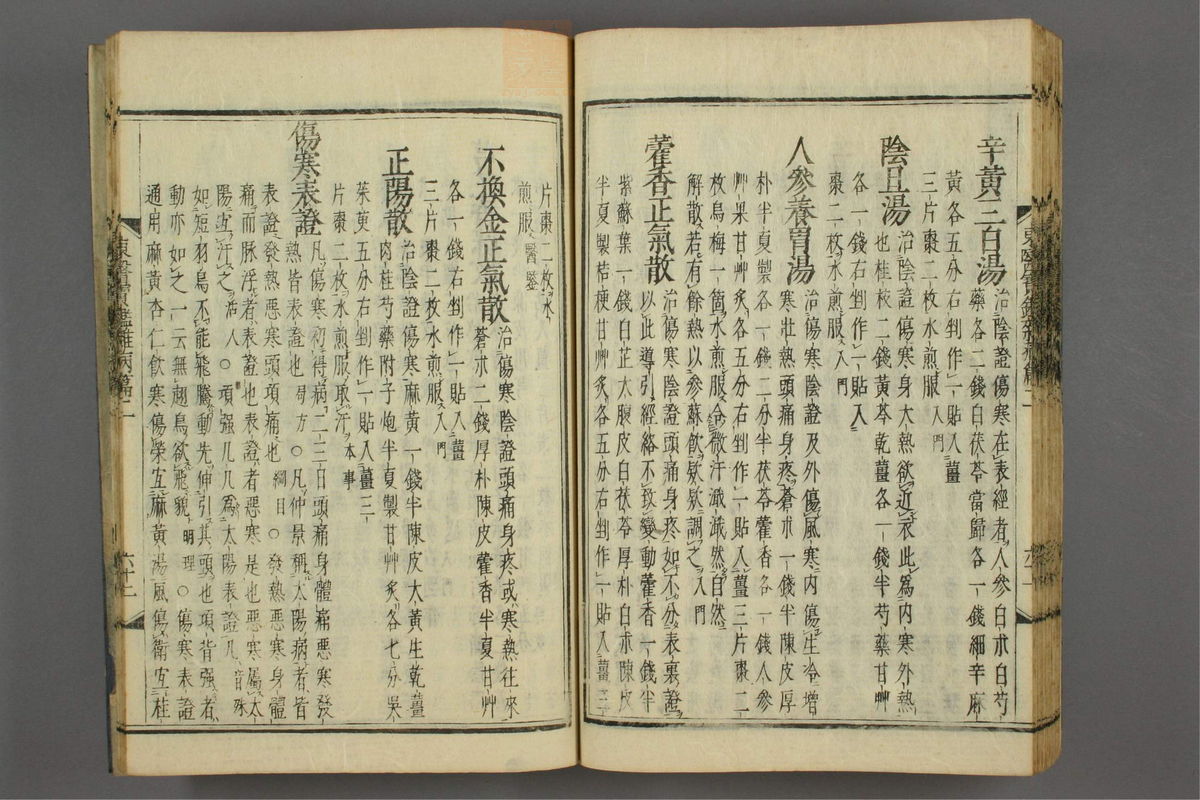 辛黃三白湯 治陰證傷寒在表經者人參白朮白芍
藥各二錢白茯苓當歸各一錢細辛麻
黃各五分右剉作一貼入薑
三片棗二枚水煎服入門
陰旦湯 治陰證傷寒身大熱欲近衣此爲內寒外熱
也桂枝二錢黃芩乾薑各一錢半芍藥甘艸
各一錢右剉作一貼入
棗二枚水煎服入門
人參養胃湯 治傷寒陰證及外傷風寒內傷生冷增
寒壯熱頭痛身疼蒼朮一錢半陳皮厚
朴半夏製各一錢二分半茯苓藿香各一錢人參
艸果甘艸炙各五分右剉作一貼入薑三片棗二
枚烏梅一箇水煎服令微汗濈濈然自然
解散若有餘熱以參蘇飮欸欸調之入門
藿香正氣散 治傷寒陰證頭痛身疼如不分表裏證
以此導引經絡不致變動藿香一錢半
紫蘇葉一錢白芷大腹皮白茯苓厚朴白朮陳皮
半夏製桔梗甘艸炙各五分右剉作一貼入薑三
片棗二枚水
煎服醫鑒
不換金正氣散 治傷寒陰證頭痛身疼或寒熱往來
蒼朮二錢厚朴陳皮藿香半夏甘艸
各一錢右剉作一貼入薑
三片棗二枚水煎服入門
正陽散 治陰證傷寒麻黃一錢半陳皮大黃生乾薑
肉桂芍藥附子炮半夏製甘艸炙各七分吳
茱萸五分右剉作一貼入薑三
片棗二枚水煎服取汗本事
傷寒表證 凡傷寒初得病二三日頭痛身體痛惡寒發
熱皆表證也局方○凡仲景稱太陽病者皆
表證發熱惡寒頭項痛也綱目○發熱惡寒身體
痛而脉浮者表證也表證者惡寒是也惡寒屬太
陽宜汗之活人○項强几几爲太陽表證几音殊
如短羽鳥不能飛騰動先伸引其頭也項背强者
動亦如之一云無翅鳥欲飛貌明理○傷寒表證
通用麻黃杏仁飮寒傷榮宜麻黃湯風傷衛宜桂
東醫寶鑑雜病篇二
六十二